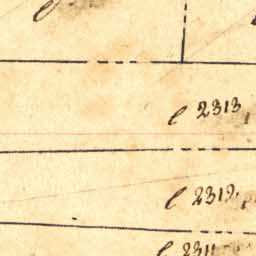 e 2313
e 2312
e 2311